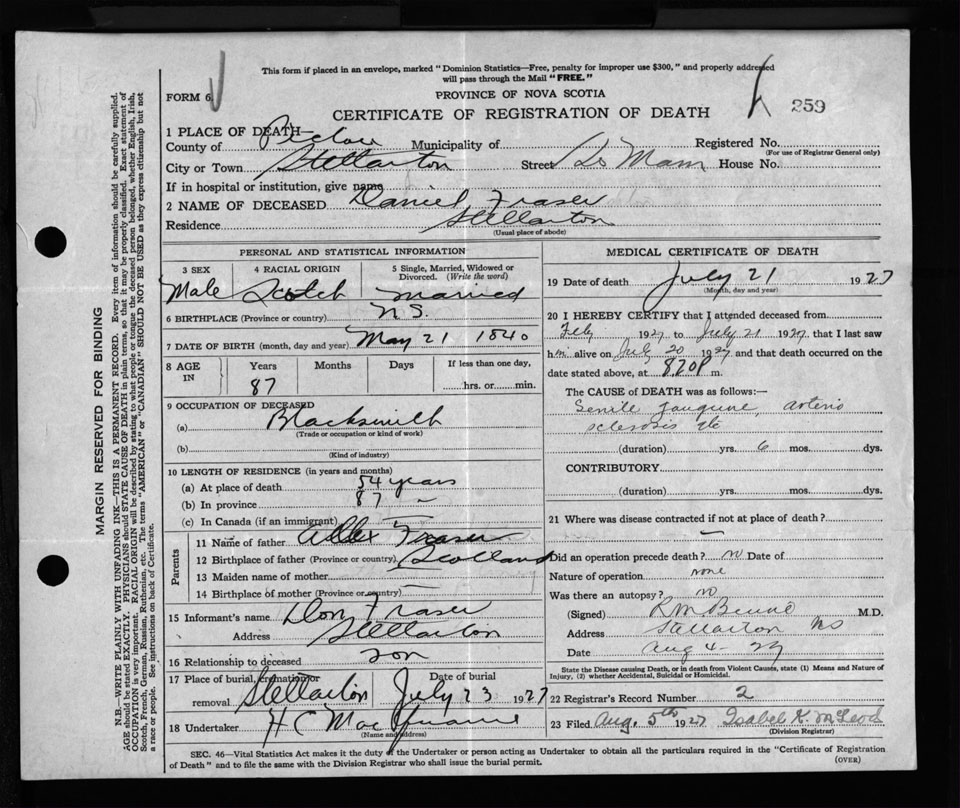 This form if placed in an envelope, marked "Dominion Statistics—Free, penalty for improper use $300," and properly addressed
will pass through the Mail "FREE."
FORM 6
PROVINCE OF NOVA SCOTIA
CERTIFICATE OF REGISTRATION OF DEATH
259
1 PLACE OF DEATH—
County of Pictou Municipality of Registered No.
(For use of Registrar General only)
City or Town Stellarton Street So Main House No.
If in hospital or institution, give name
2 NAME OF DECEASED Daniel Fraser
Residence Stellarton
(Usual place of abode)
PERSONAL AND STATISTICAL INFORMATION
3 SEX 4 RACIAL ORIGIN 5 Single, Married, Widowed or Divorced. (Write the word)
Male Scotch Married
6 BIRTHPLACE (Province or country) N.S.
7 DATE OF BIRTH (month, day and year) May 21 1840
8 AGE IN Years Months Days If less than one day,
87 hrs. or min.
9 OCCUPATION OF DECEASED
(a) Blacksmith
(Trade or occupation or kind of work)
(b)
(Kind of industry)
10 LENGTH OF RESIDENCE (in years and months)
(a) At place of death 54 years
(b) In province 87 "
(c) In Canada (if an immigrant)
Parents
11 Name of father Alex Fraser
12 Birthplace of father (Province or country) Scotland
13 Maiden name of mother —
14 Birthplace of mother (Province or country) —
15 Informant's name Don Fraser
Address Stellarton
16 Relationship to deceased son
17 Place of burial, cremation or removal Stellarton Date of burial July 23 1927
18 Undertaker H C Mac
(Name and address)
MEDICAL CERTIFICATE OF DEATH
19 Date of death July 21 1927
(Month, day and year)
20 I HEREBY CERTIFY that I attended deceased from
Feby 1927 to July 21 1927, that I last saw
him alive on July 20 1927 and that death occurred on
date stated above, at 820P m.
The CAUSE of DEATH was as follows:—
Senile Gangrene, arterio
sclerosis etc
(duration) yrs. 6 mos. dys.
CONTRIBUTORY
(duration) yrs. mos. dys.
21 Where was disease contracted if not at place of death?
—
Did an operation precede death? no Date of
Nature of operation none
Was there an autopsy? no
(Signed) R M M.D.
Address Stellarton NS
Date Aug 4-27
State the Disease causing Death, or in death from Violent Causes, state (1) Means and Nature of Injury, (2) whether Accidental, Suicidal or Homicidal.
22 Registrar's Record Number 2
23 Filed Aug. 5th 1927 Isabel K. McLeod
(Division Registrar)
SEC. 46—Vital Statistics Act makes it the duty of the Undertaker or person acting as Undertaker to obtain all the particulars required in the "Certificate of Registration
of Death" and to file the same with the Division Registrar who shall issue the burial permit. (OVER)
MARGIN RESERVED FOR BINDING
N.B.—WRITE PLAINLY WITH UNFADING INK—THIS IS A PERMANENT RECORD. Every item of information should be carefully supplied.
AGE should be stated EXACTLY. PHYSICIANS should STATE CAUSE OF DEATH in plain terms, so that it may be properly classified. Exact statement of
OCCUPATION is very important. RACIAL ORIGIN will be described by stating to what people or tongue the deceased person belonged, whether English, Irish,
Scotch, French, German, Russian, Ruthenian, etc. The terms "AMERICAN" or "CANADIAN" SHOULD NOT BE USED as they express citizenship but not
a race or people. See instructions on back of Certificate.